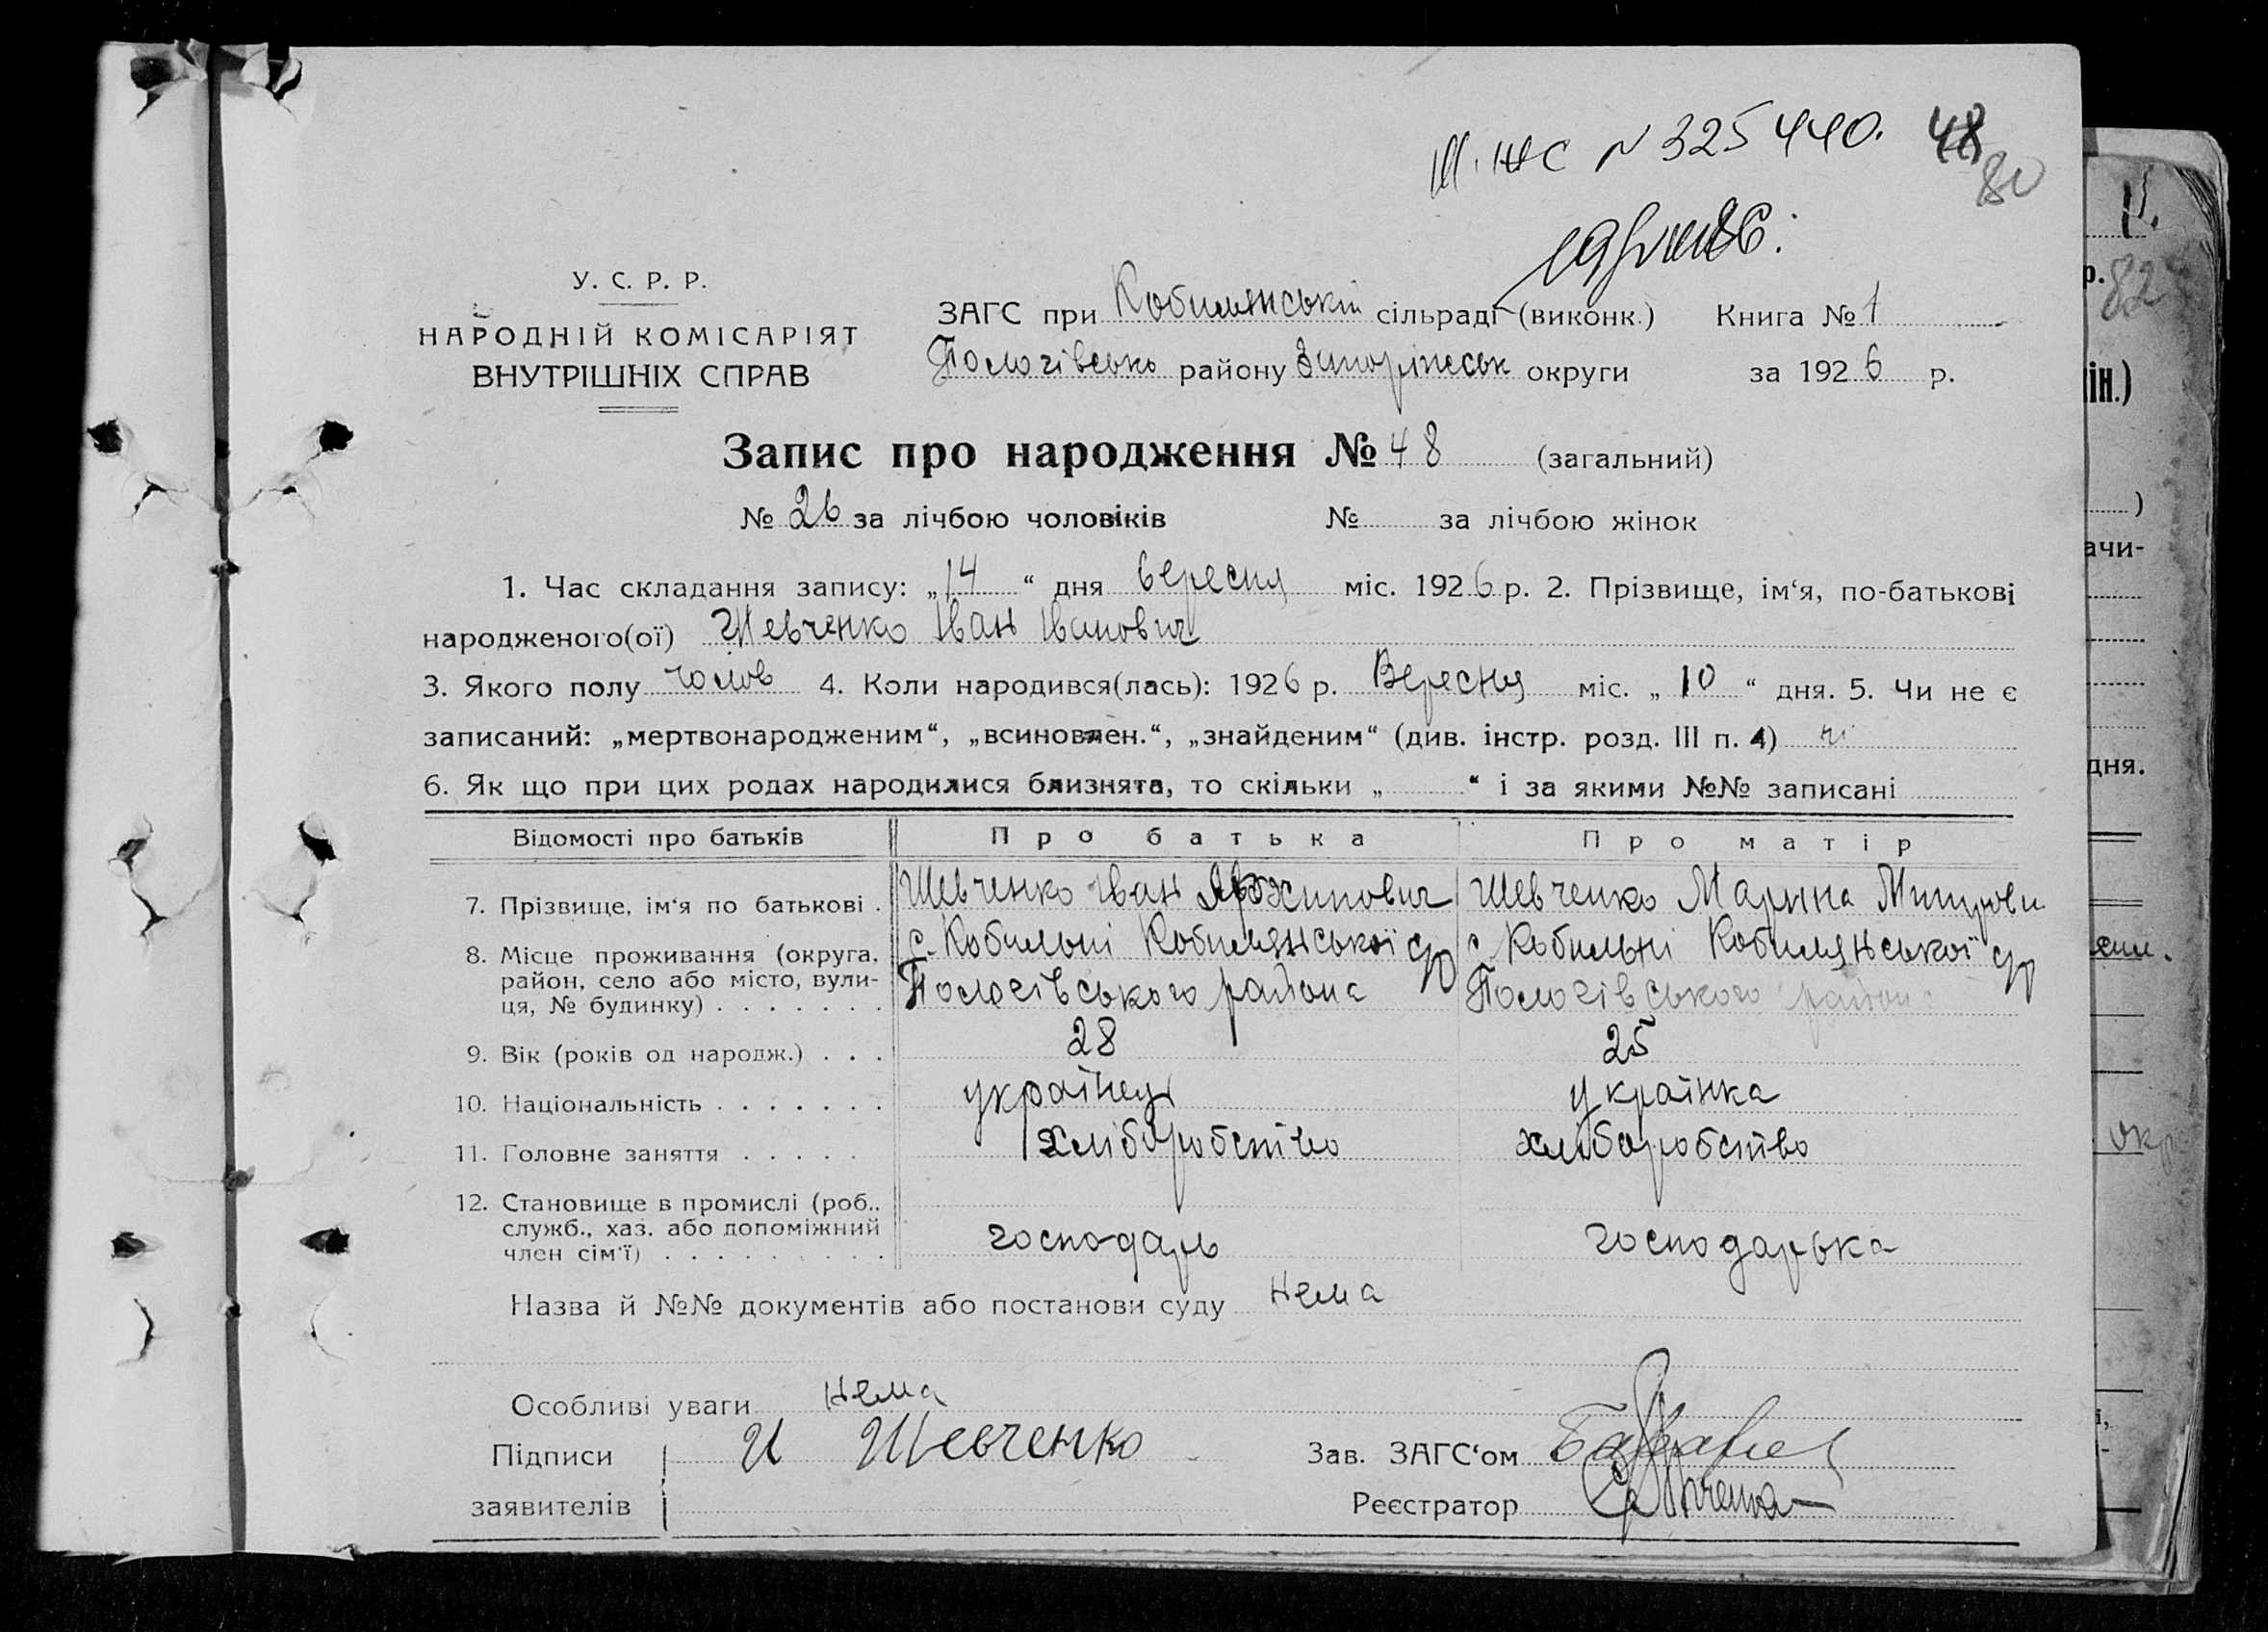 ІІІ. ЖС № 325440. 48
80
У. С. Р. Р.
НАРОДНІЙ КОМІСАРІЯТ
ВНУТРІШНІХ СПРАВ
ЗАГС при Кобилянські сільраді (виконк.) Книга № 1
Пологівсько району Запоріжськ округи за 1926 р.
Запис про народження № 48 (загальний)
№ 26 за лічбою чоловіків № за лічбою жінок
1. Час складання запису: „14“ дня вересня міс. 1926 р. 2. Прізвище, ім‘я, по-батькові
народженого(ої) Шевченко Іван Іванович
3. Якого полу чолов 4. Коли народився(лась): 1926 р. Вересня міс. „10“ дня. 5. Чи не є
записаний: „мертвонародженим“, „всиновлен.“, „знайденим“ (див. інстр. розд. III п. 4)
6. Як що при цих родах народилися близнята, то скільки „ “ і за якими №№ записані
Відомості про батьків Про батька Про матір
7. Прізвище, ім‘я по батькові . Шевченко Іван Архипович Шевченко Марина
8. Місце проживання (округа, район, село або місто, вули-ця, № будинку) . . . . . . . с. Кобильні Кобилянської с/р Пологівського района с. Кобильні Кобилянської с/р Пологівського района
9. Вік (років од народж.) . . . 28 25
10. Національність . . . . . . . українец українка
11. Головне заняття . . . . . хліборобство хліборобство
12. Становище в промислі (роб., служб., хаз. або допоміжний член сім‘ї) . . . . . . . . . господарь господарька
Назва й №№ документів або постанови суду нема
Особливі уваги нема
Підписи И Шевченко Зав. ЗАГС‘ом
заявителів Реєстратор
82
ін.)
)
ачи-
дня.
окр